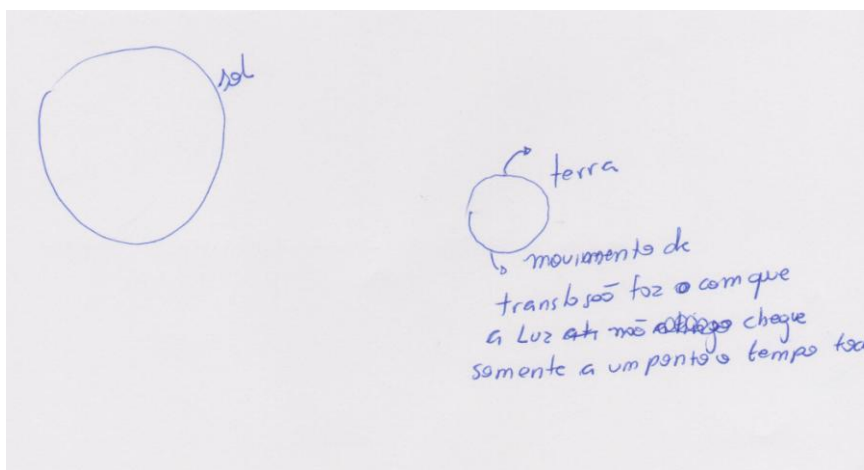 sol
terra
movimento de
translasão faz o com que
a Luz não chegue
somente a um ponto o tempo